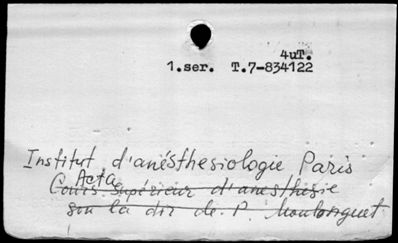 4uT.
1.ser. T.7-834122
Institut d'anésthesiologie Paris
Acta
Cours supérieur d'anesthésie
sou la dir de. P. Moulonguet